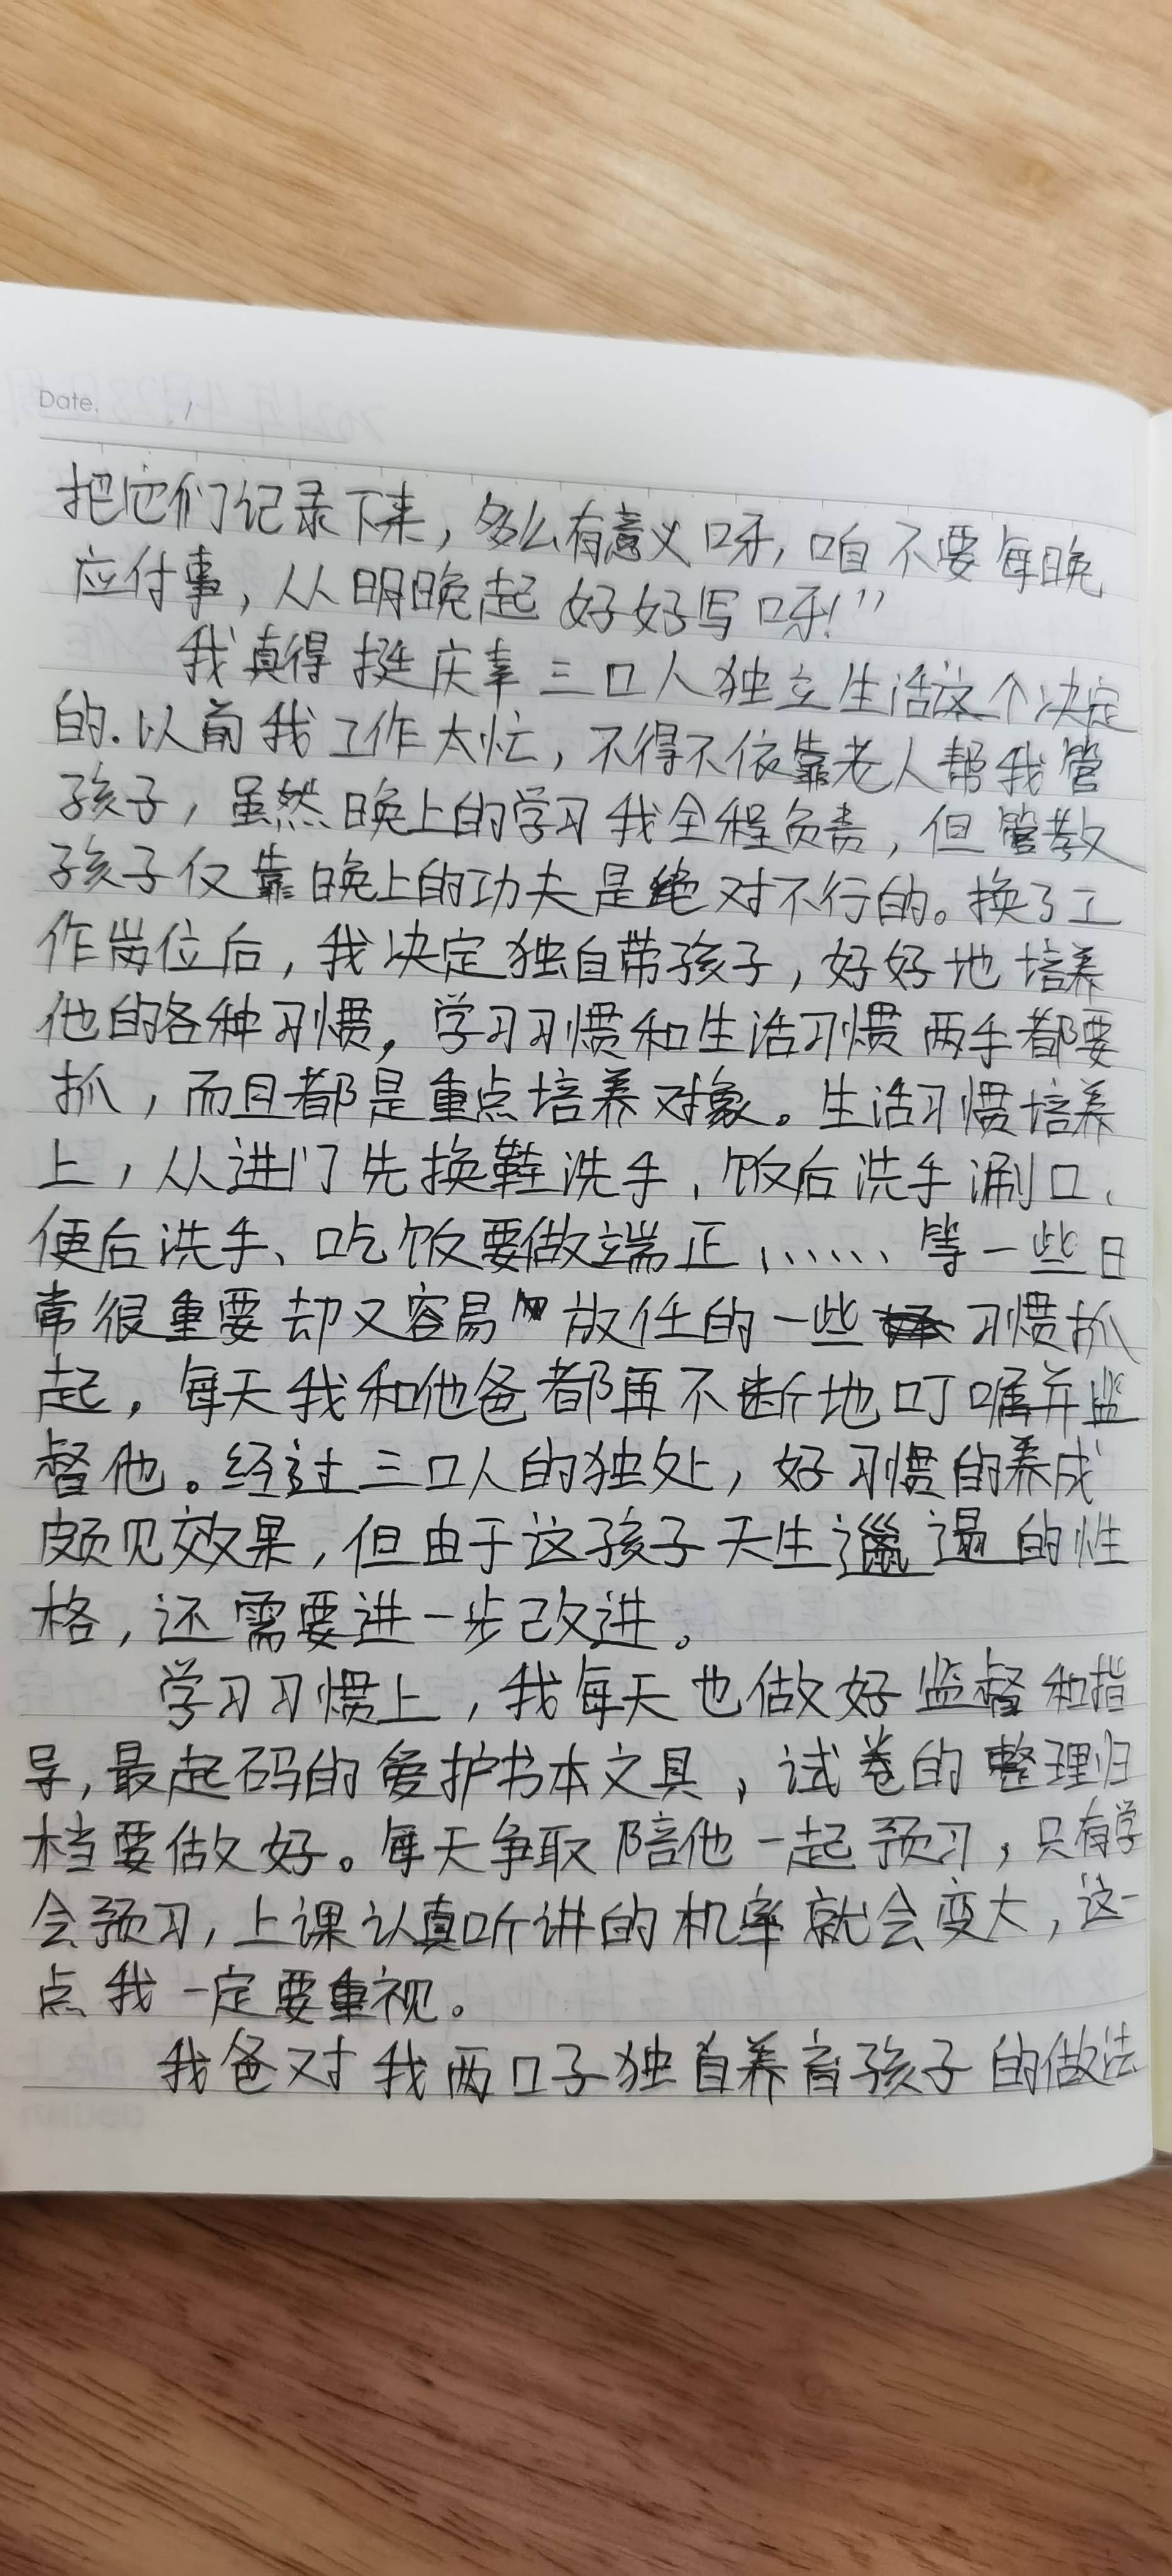 Date.
把它们记录下来，多么有意义呀，咱不要每晚
应付事，从明晚起好好写呀！”
我真得挺庆幸三口人独立生活这个决定
的.以前我工作太忙，不得不依靠老人帮我管
孩子，虽然晚上的学习我全程负责，但管教
孩子仅靠晚上的功夫是绝对不行的。换了工
作岗位后，我决定独自带孩子，好好地培养
他的各种习惯，学习习惯和生活习惯两手都要
抓，而且都是重点培养对象。生活习惯培养
上，从进门先换鞋洗手、饭后洗手涮口、
便后洗手、吃饭要做端正、……等一些日
常很重要却又容易放任的一些习惯抓
起，每天我和他爸都再不断地叮嘱并监
督他。经过三口人的独处，好习惯的养成
颇见效果，但由于这孩子天生邋遢的性
格，还需要进一步改进。
学习习惯上，我每天也做好监督和指
导，最起码的爱护书本文具，试卷的整理归
档要做好。每天争取陪他一起预习，只有学
会预习，上课认真听讲的机率就会变大，这一
点我一定要重视。
我爸对我两口子独自养育孩子的做法